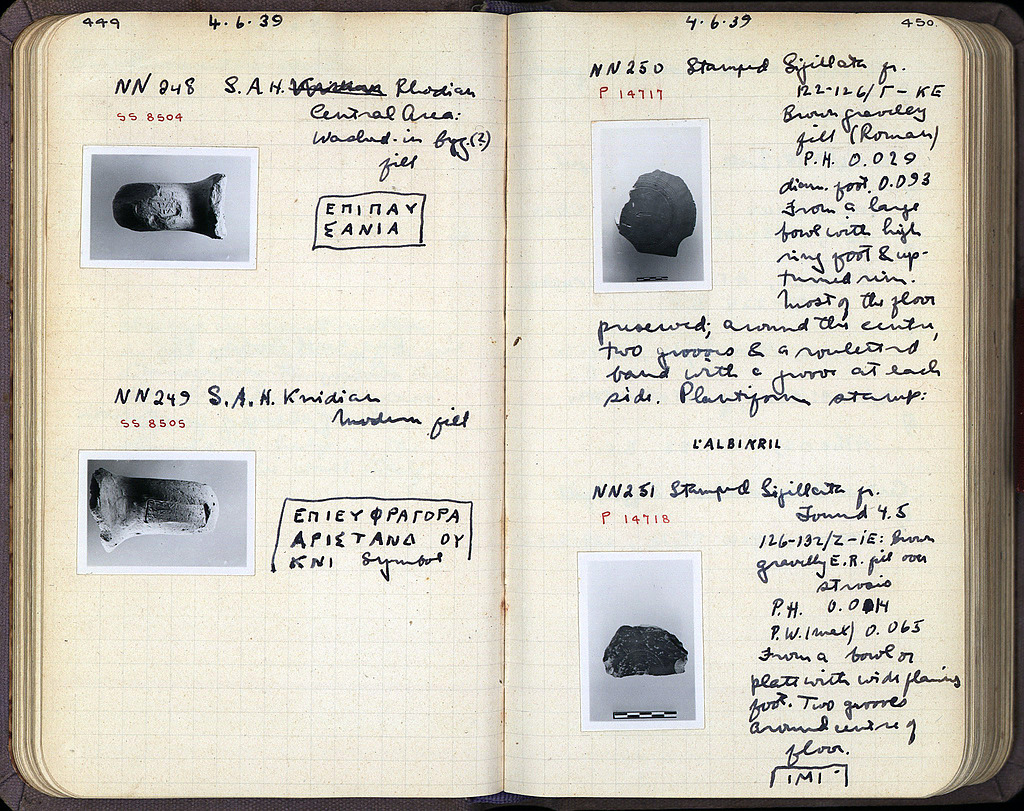 449
4.6.39
NN 248 S.A.H. Rhodian
SS 8504
Central Area:
Washed-in Byz.(?)
fill
ΕΠΙΠΑΥ
ΣΑΝΙΑ
NN 249 S.A.H. Knidian
SS 8505
Modern fill
ΕΠΙΕΥΦΡΑΓΟΡΑ
ΑΡΙΣΤΑΝΔ ΟΥ
ΚΝΙ Symbol
4.6.39
450.
NN 250 Stamped Sigillata fr.
P 14717
122-126/Γ – ΚΕ
Brown gravelly
fill (Roman)
P.H. 0.029
diam. foot. 0.093
From a large
bowl with high
ring foot & up-
turned rim.
Most of the floor
preserved; around the centre,
two grooves & a rouletted
band with a groove at each
side. Plantiform stamp:
L'ALBINRIL
NN 251 Stamped Sigillata fr.
P 14718
Found 4.5
126-132/Z – ΙΕ: Brown
gravelly E.R. fill over
P.H. 0.014
P.W. (max) 0.065
From a bowl or
plate with wide flaring
foot. Two grooves
around centre of
floor.
IMI